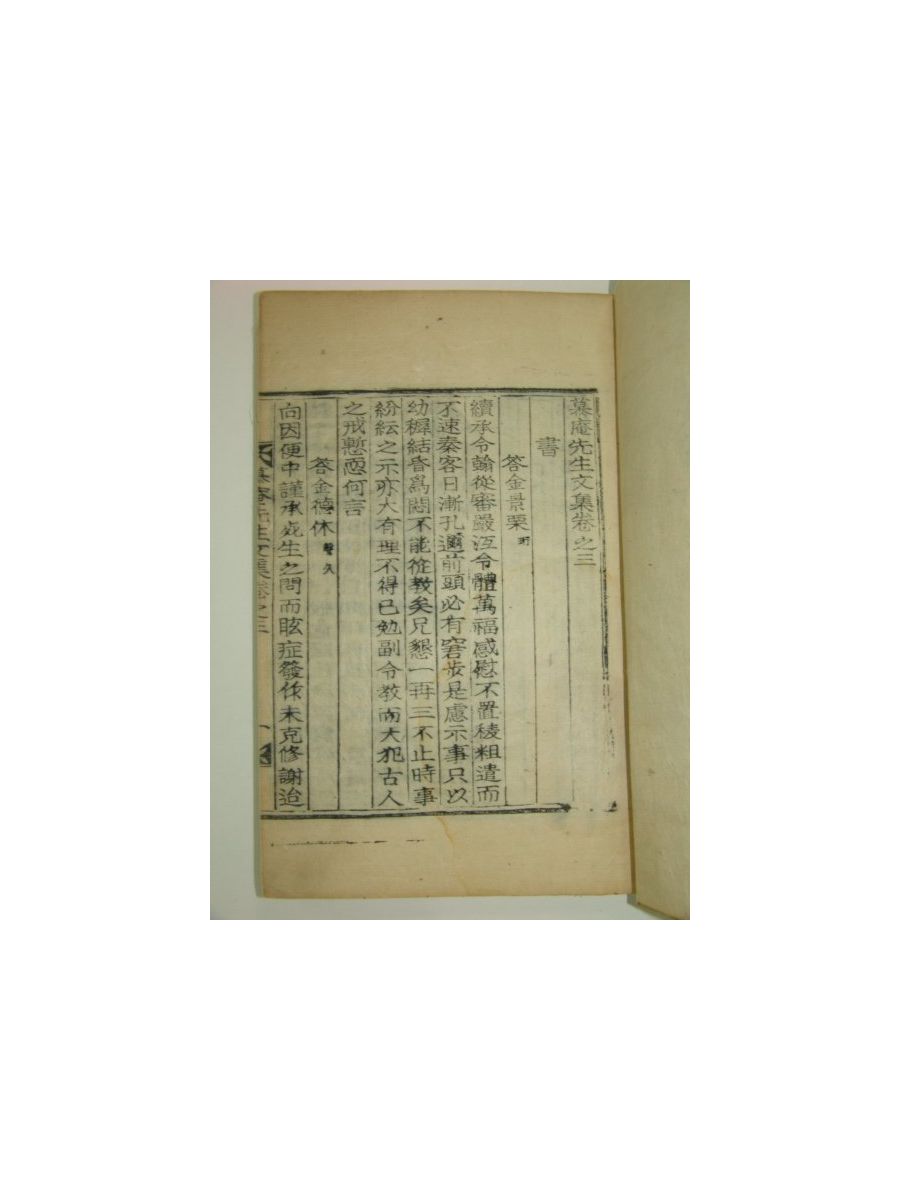 慕庵先生文集卷之三
書
答金景栗 㺬
續承令翰從審嚴沍令體萬福感慰不置稜粗遣而
不速秦客日漸孔邇前頭必有窘步是慮示事只以
幼穉結昏爲悶不能從教矣兄懇一再三不止時事
紛紜之示亦大有理不得已勉副令教而大犯古人
之戒慙恧何言
答金德休 聲久
向因便中謹承兂生之問而眩症發作未克修謝迨
慕庵先生文集卷之三 一